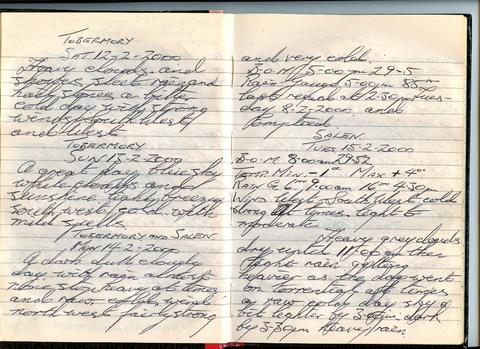 TOBERMORY
SAT 12-2-2000
Heavy clouds and
showers, sleet rain and
hail stones a bitter
cold day with strong
winds South West
and West
TOBERMORY
SUN 13-2-2000
A great day blue sky
white clouds and
sunshine light breezes
South West cold with
mild spells.
TOBERMORY AND SALEN.
MON 14-2-2000
A dark dull cloudy
day with rain almost
none stop heavy at times
and raw cold, wind
north west fairly strong
and very cold.
B.O.M. 5:00pm 29-5
Rain Gauge 5:00pm 85mm
day 8-2-2000. and
emptied.
SALEN.
TUES 15-2-2000
B.O.M 8:00am 29.52
TEMP MIN -1°c MAX +4°c
Rain G 9:00am 16m 4:30pm
Wind West South West cold
strong at times. light to
moderate
Heavy grey clouds
dry until 11:00am then
light rain getting
heavier as the day went
on torrential at times
a raw cold day sky a
bit lighter by 3-00pm dark
by 5-30pm heavy rain.